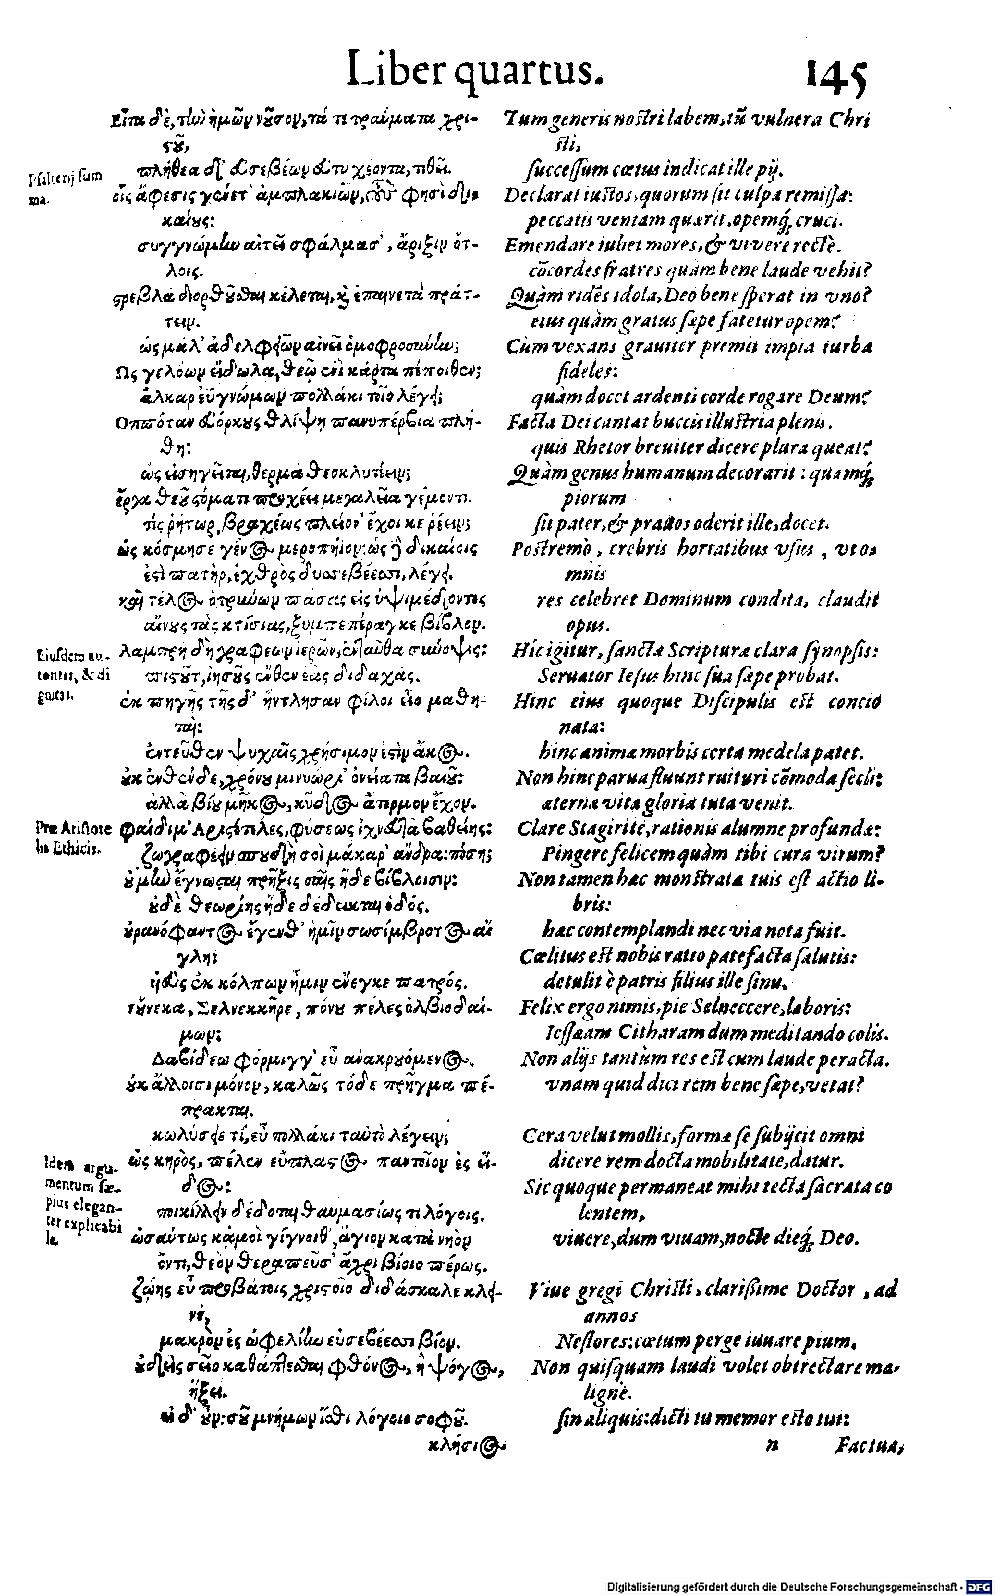 Liber quartus. 145
Psalterij sum
ma.
Eiusdem au-
toritas, & di
gnitas.
Præ Aristote
le in Ethicis.
Idem argu-
mentum sæ-
pius elegan-
ter explicabi
le.
Εἶτα δὲ, τὴν ἡμῶν νοῦσον, τά τε τραύματα χρι-
στοῦ,
πλήθεα δ' εὐσεβέων εὐτυχέοντα,
οἷς ἄφεσις γένετ' ἀμπλακιῶν, φησὶ δι-
καίους:
συγγνώμην αἰτεῖ σφάλμασ', ἄρηξιν ὅτ-
λοις.
στρεβλὰ διορθοῦσθαι κέλεται, καὶ ἐπαινετὰ πράτ-
τειν.
ὡς μάλ' ἀδελφῶν αἰνεῖ ὁμοφροσύνην;
Ως γελόων εἴδωλα, θεῷ ἑνὶ κάρτα πέποιθεν;
ἄλκαρ εὐγνώμων πολλάκι τοῖο λέγει;
Οππόταν εὐόρκους θλίψῃ πανυπέρβια πλή-
θη:
ὡς εἰσηγεῖται, θερμὰ θεοκλυτέειν;
ἔργα θεοῦ στόματι προχέει μεγαλεῖα γέμοντι.
τίς ῥήτωρ, βραχέως πλείον' ἔχοι κε ῥέειν;
ὡς κόσμησε γένος μεροπήϊον: ὡς ἢ δικαίοις
ἐστὶ πατὴρ, ἐχθρὸς δυσσεβέεσσι, λέγει.
καὶ τέλος ὀτρύνων πάσας εἰς ὑψιμέδοντος
αἴνους τὰς κτίσιας, ξυμπεπέραγκε βίβλον.
λαμπρὴ δὴ γραφέων ἱερῶν, ἐνταῦθα σύνοψις:
πιστοῦτ', ἰησοῦς ἔνθεν ἑὰς διδαχάς.
ἐκ πηγῆς τῆς δ' ἤντλησαν φίλοι εἷο μαθη-
ταί:
ἐντεῦθεν ψυχαῖς χρήσιμόν ἐστιν ἄκος.
οὐκ ἔνθεν δὲ, χρόνου μινυώρι' ὀνείατα βαιοῦ:
ἀλλὰ βίου μῆκος, κῦδος ἀπῆμον ἔχον.
Φαίδιμ' Αριστότελες, φύσεως ἰχνευτὰ βαθείης:
ζωγραφέειν σπουδὴ σοὶ μάκαρ' ἄνδρα: πόση;
οὐ μὴν ἔγνωσται πρῆξις σαῖς ἥδε βίβλοισιν:
οὐδὲ θεωρίης ἥδε δέδεικται ὁδός.
οὐρανόφαντος ἔγενθ' ἡμῖν σωσίμβροτος αἴ-
γλη:
ἠῢς ἐκ κόλπων ἧμιν ἔνεγκε πατρός.
τοὔνεκα, Σελνεκκῆρε, πόνου πέλες ὀλβιοδαί-
μων:
Δαβίδεω φόρμιγγ' εὖ ἀνακρουόμενος.
οὐκ ἄλλοισι μόνον, καλῶς τόδε πρῆγμα πέ-
πρακται.
κωλύσειε τί, εὖ πολλάκι ταὐτὸ λέγειν;
ὡς κηρὸς, πέλεν εὔπλαστος παντοῖον ἐς εἶ-
δος:
ποικίλλειν δέδοται θαυμασίως τι λόγοις.
ὡσαύτως κἀμοὶ γίγνοιθ', ἅγιον κατὰ νηὸν
ὄντι, θεὸν θεραπεῦσ' ἄχρι βίοιο πέρως.
ζώῃς εὖ προβάτοις χριστοῖο διδάσκαλε κλει-
νέ,
μακρὸν ἐς ὠφελίην εὐσεβέεσσι βίον.
οὐδεὶς σεῖο καθάπτεσθαι φθόνος, ἢ ψόγος,
ἥξει.
εἰ δ' οὖν: σοῦ μνήμων ἴσθι λόγοιο σοφοῦ.
κλήσιος
Tum generis nostri labem, tū vulnera Chri
sti,
successum cœtus indicat ille pij.
Declarat iustos, quorum sit culpa remissa:
peccatis veniam quærit, opemq́; cruci.
Emendare iubet mores, & vivere rectè.
cōcordes fratres quàm bene laude vehit?
Quàm ridēs idola, Deo bene sperat in vno?
eius quàm gratus sæpe fatetur opem?
Cùm vexans grauiter premit impia turba
fideles:
quàm docet ardenti corde rogare Deum?
Facta Dei cantat buccis illustria plenis.
quis Rhetor breuiter dicere plura queat?
Quàm genus humanum decorarit: quamq́;
piorum
sit pater, & prauos oderit ille, docet.
Postremò, crebris hortatibus vsus, vt o-
mnis
res celebret Dominum condita, claudit
opus.
Hic igitur, sanctæ Scripturæ clara synopsis:
Seruator Iesus hinc sua sæpe probat.
Hinc eius quoque Discipulis est concio
nata:
hinc animæ morbis certa medela patet.
Non hinc parua fluunt ruituri cōmoda secli:
æterna vita gloria tuta venit.
Clare Stagirite, rationis alumne profundæ:
Pingere felicem quàm tibi cura virum?
Non tamen hæc monstrata tuis est actio li-
bris:
hæc contemplandi nec via nota fuit.
Cælitus est nobis ratio patefacta salutis:
detulit è patris filius ille sinu.
Felix ergo nimis, pie Selneccere, laboris:
Iessæam Citharam dum meditando colis.
Non alijs tantùm res est cum laude peracta.
vnam quid dici rem bene sæpe, vetat?
Cera velut mollis, formæ se subijcit omni
dicere rem docta mobilitate, datur.
Sic quoque permaneat mihi tecta sacrata co
lentem,
viuere, dum viuam, nocte dieq́; Deo.
Viue gregi Christi, clarissime Doctor, ad
annos
Nestoreos: cœtum perge iuuare pium.
Non quisquam laudi volet obtrectare ma-
lignè.
sin aliquis: dicti tu memor esto tui:
n Factua,
Digitalisierung gefördert durch die Deutsche Forschungsgemeinschaft - DFG